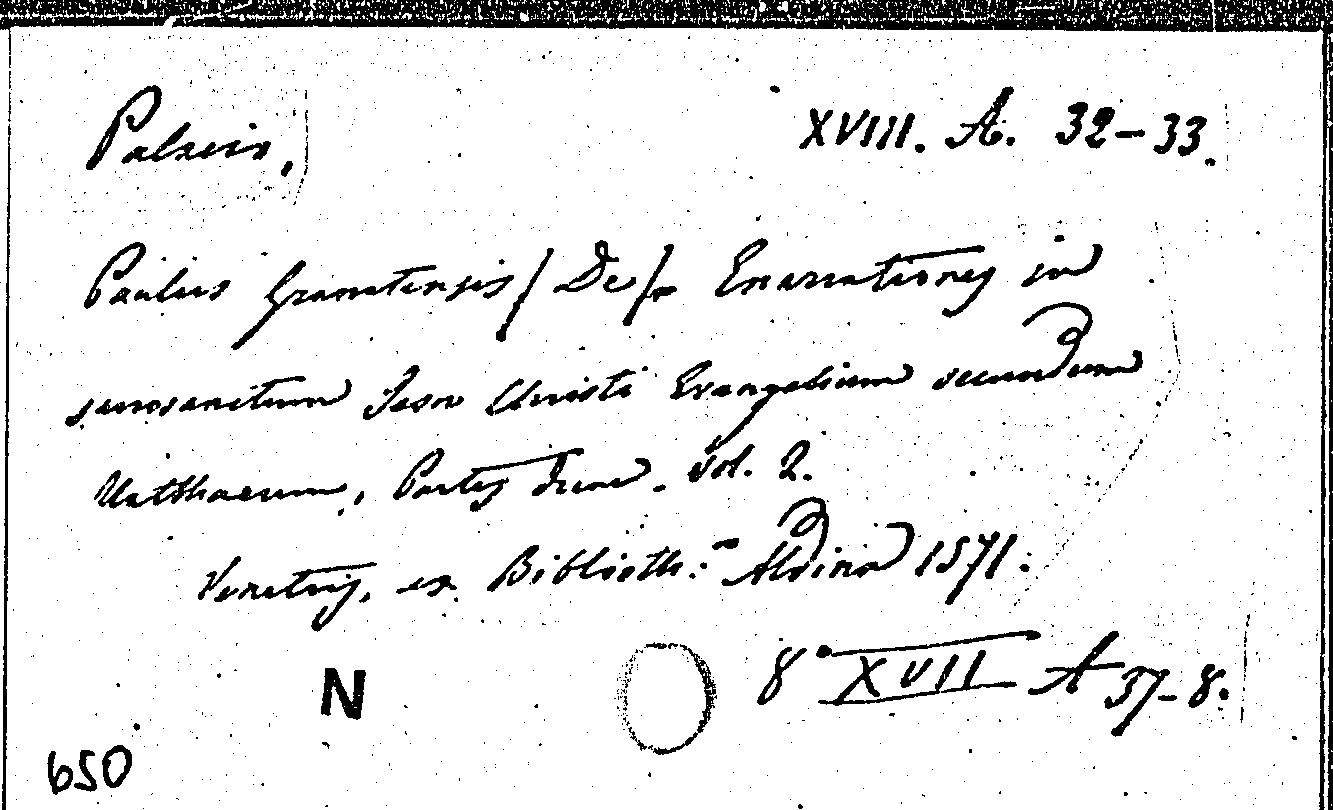 Palacio, XVIII. A. 32-33.
Paulus Granatensis / De / Enarrationes in
sacrosanctum Jesu Christi Evangelium secundum
Matthaeum, Partes duae. Vol. 2.
Venetiis, ex Biblioth.a Aldina 1571.
8° XVII A 37-8.
N
650